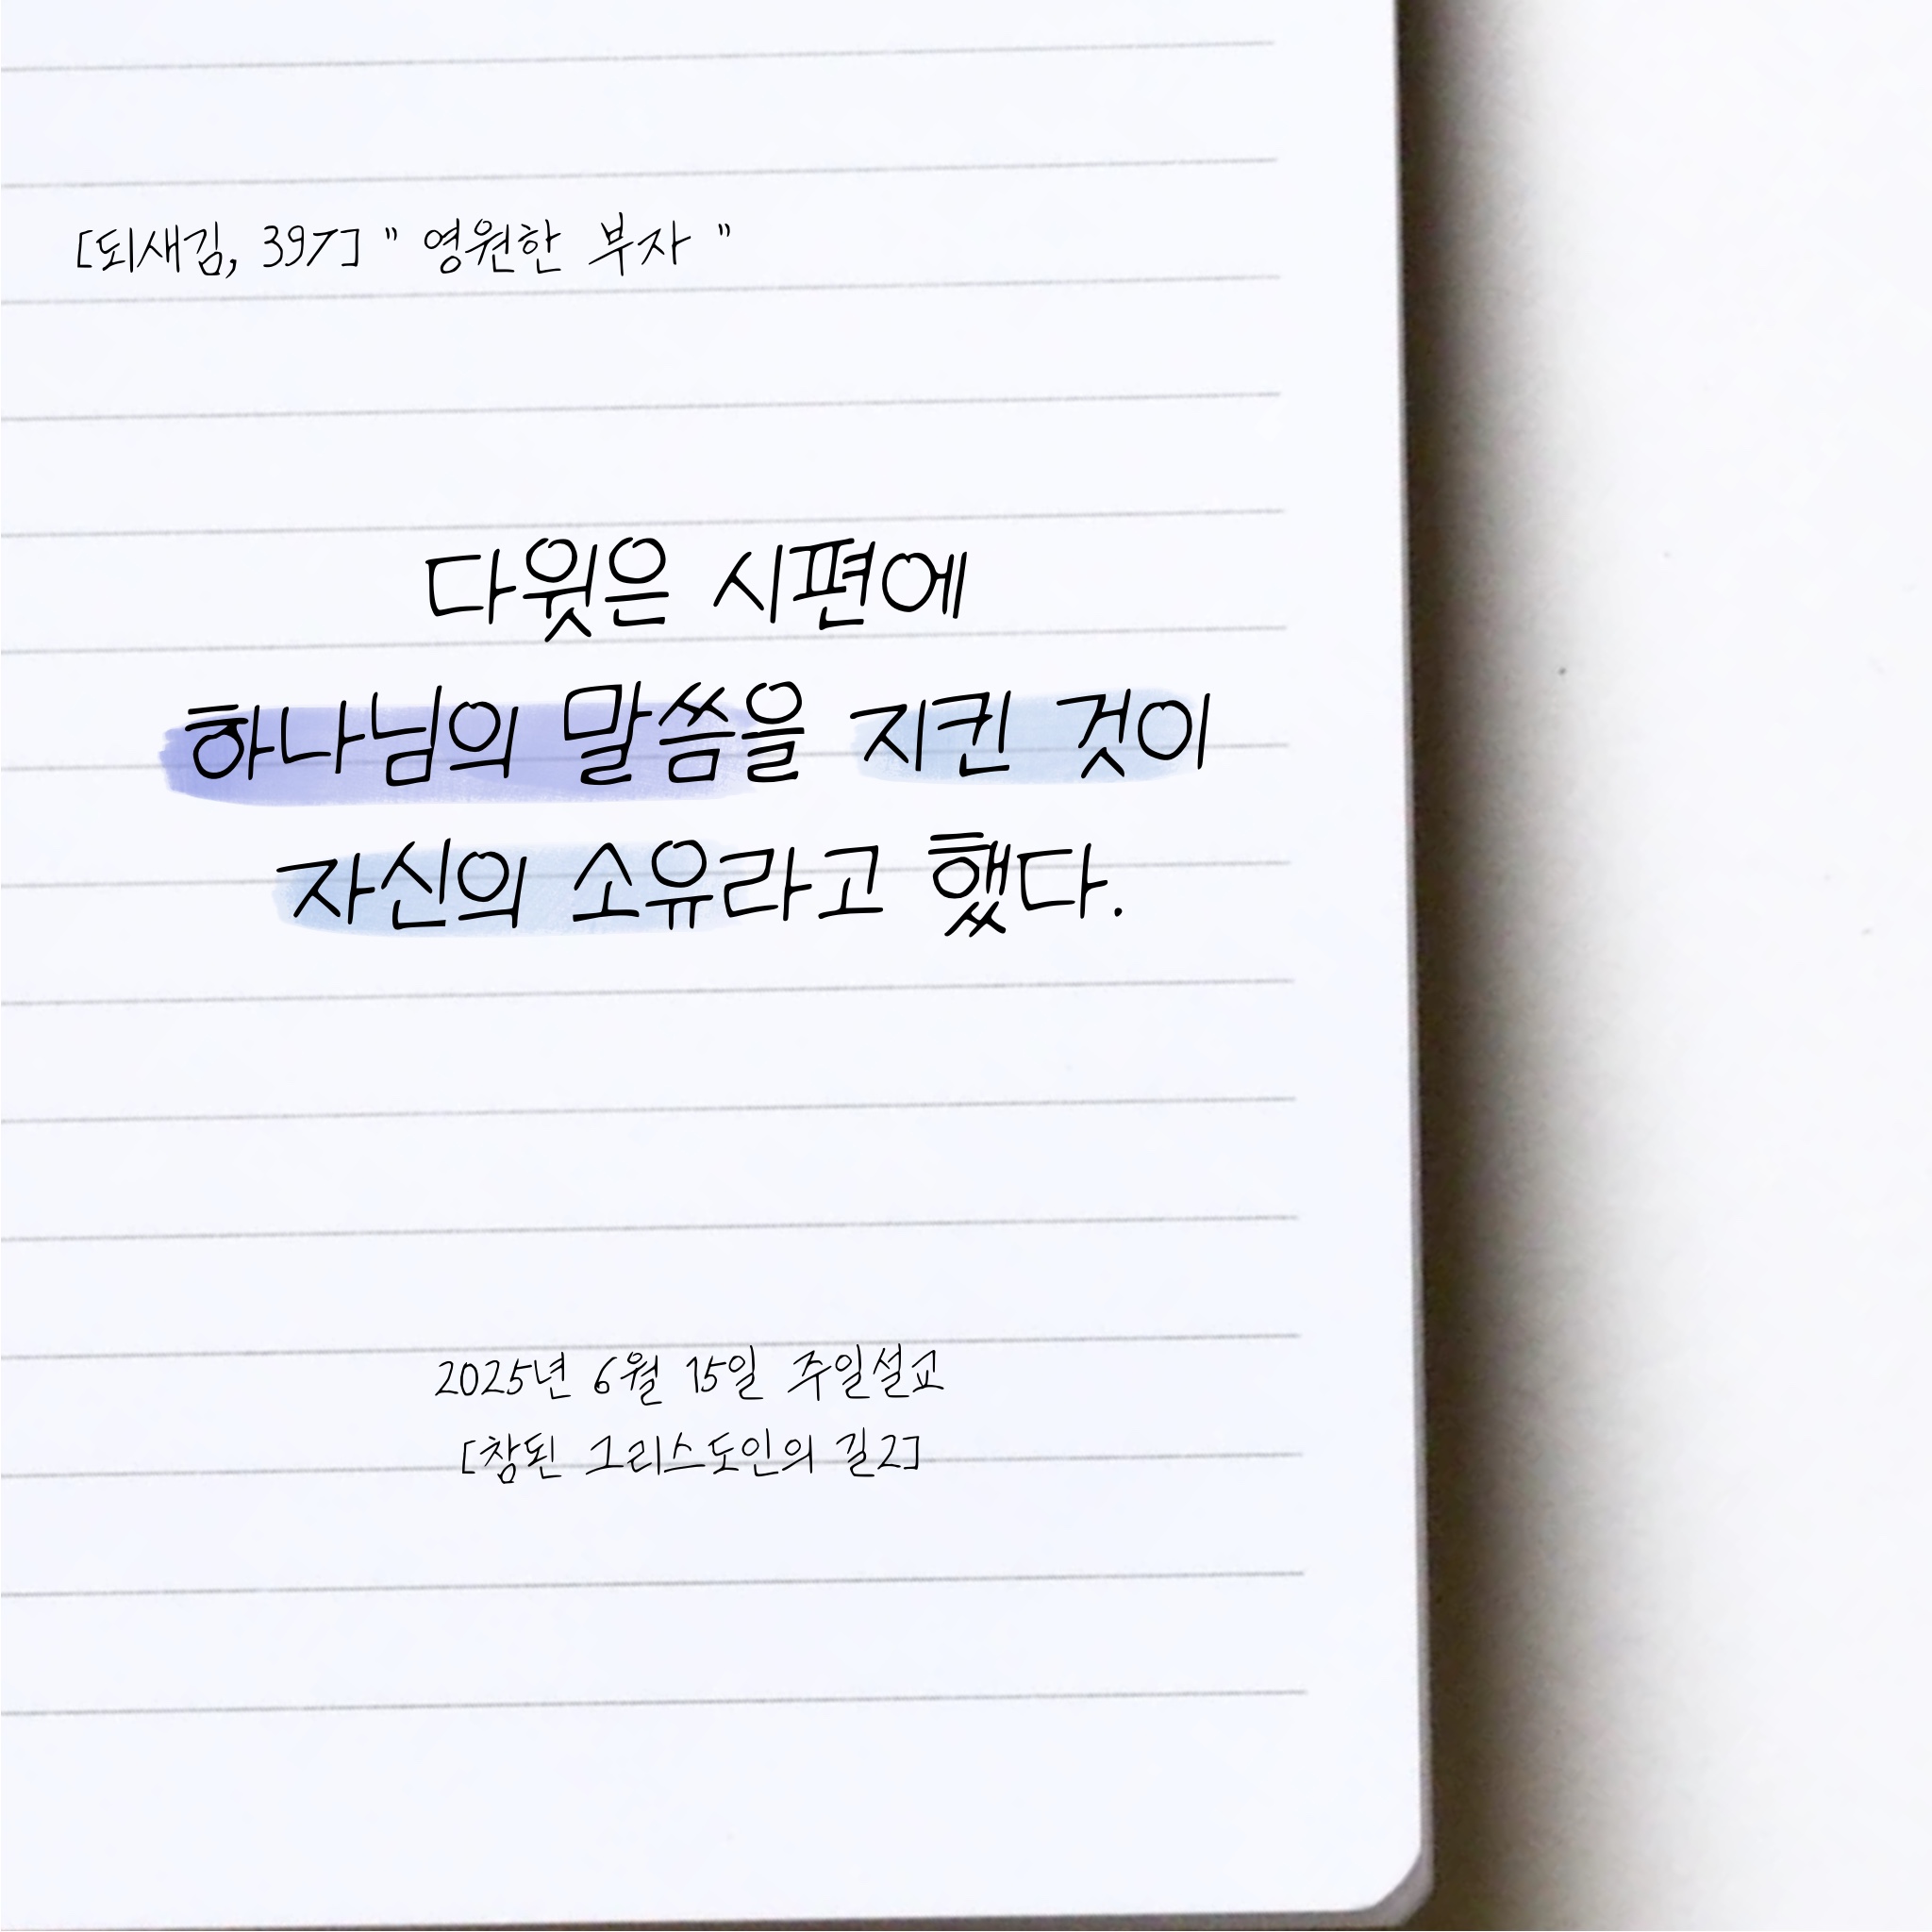 [되새김, 397] " 영원한 부자 "
다윗은 시편에
하나님의 말씀을 지킨 것이
자신의 소유라고 했다.
2025년 6월 15일 주일설교
[참된 그리스도인의 길2]